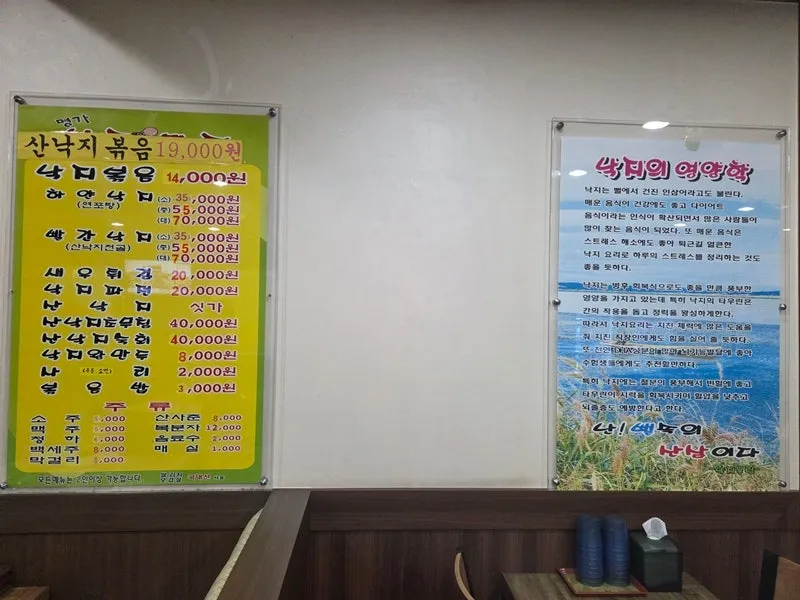 명가
산낙지 볶음 19,000원
낙지볶음 14,000원
하얀낙지 (소) 35,000원
(연포탕) (중) 55,000원
(대) 70,000원
빨강낙지 (소) 35,000원
(산낙지전골) (중) 55,000원
(대) 70,000원
새우튀김 20,000원
낙지파전 20,000원
산낙지 싯가
산낙지초무침 40,000원
산낙지숙회 40,000원
낙지왕만두 8,000원
사리 2,000원
볶음밥 3,000원
주류
소주 5,000 산사춘 8,000
맥주 5,000 복분자 12,000
청하 6,000 음료수 2,000
백세주 8,000 매실 1,000
막걸리 4,000
모든메뉴는 2인이상 가능합니다.
쌀 김치
국내산
낙지의 영양학
낙지는 뻘에서 건진 인삼이라고도 불린다.
매운 음식이 건강에도 좋고 다이어트
음식이라는 인식이 확산되면서 많은 사람들이
많이 찾는 음식이 되었다. 또 매운 음식은
스트레스 해소에도 좋아 퇴근길 얼큰한
낙지 요리로 하루의 스트레스를 정리하는 것도
좋을 듯하다.
낙지는 병후 회복식으로도 좋을 만큼 풍부한
영양을 가지고 있는데 특히 낙지의 타우린은
간의 작용을 돕고 정력을 왕성하게한다.
따라서 낙지요리는 지친 체력에 많은 도움을
줘 지친 직장인에게도 힘을 실어 줄 듯하다.
또한 DHA성분이 많아 뇌기능발달에 좋아
수험생들에게도 추천할만하다.
특히 낙지에는 철분이 풍부해서 빈혈에 좋고
타우린이 시력을 회복시키며 혈압을 낮추고
뇌졸중도 예방한다고 한다.
난! 뻘속의
산삼이다